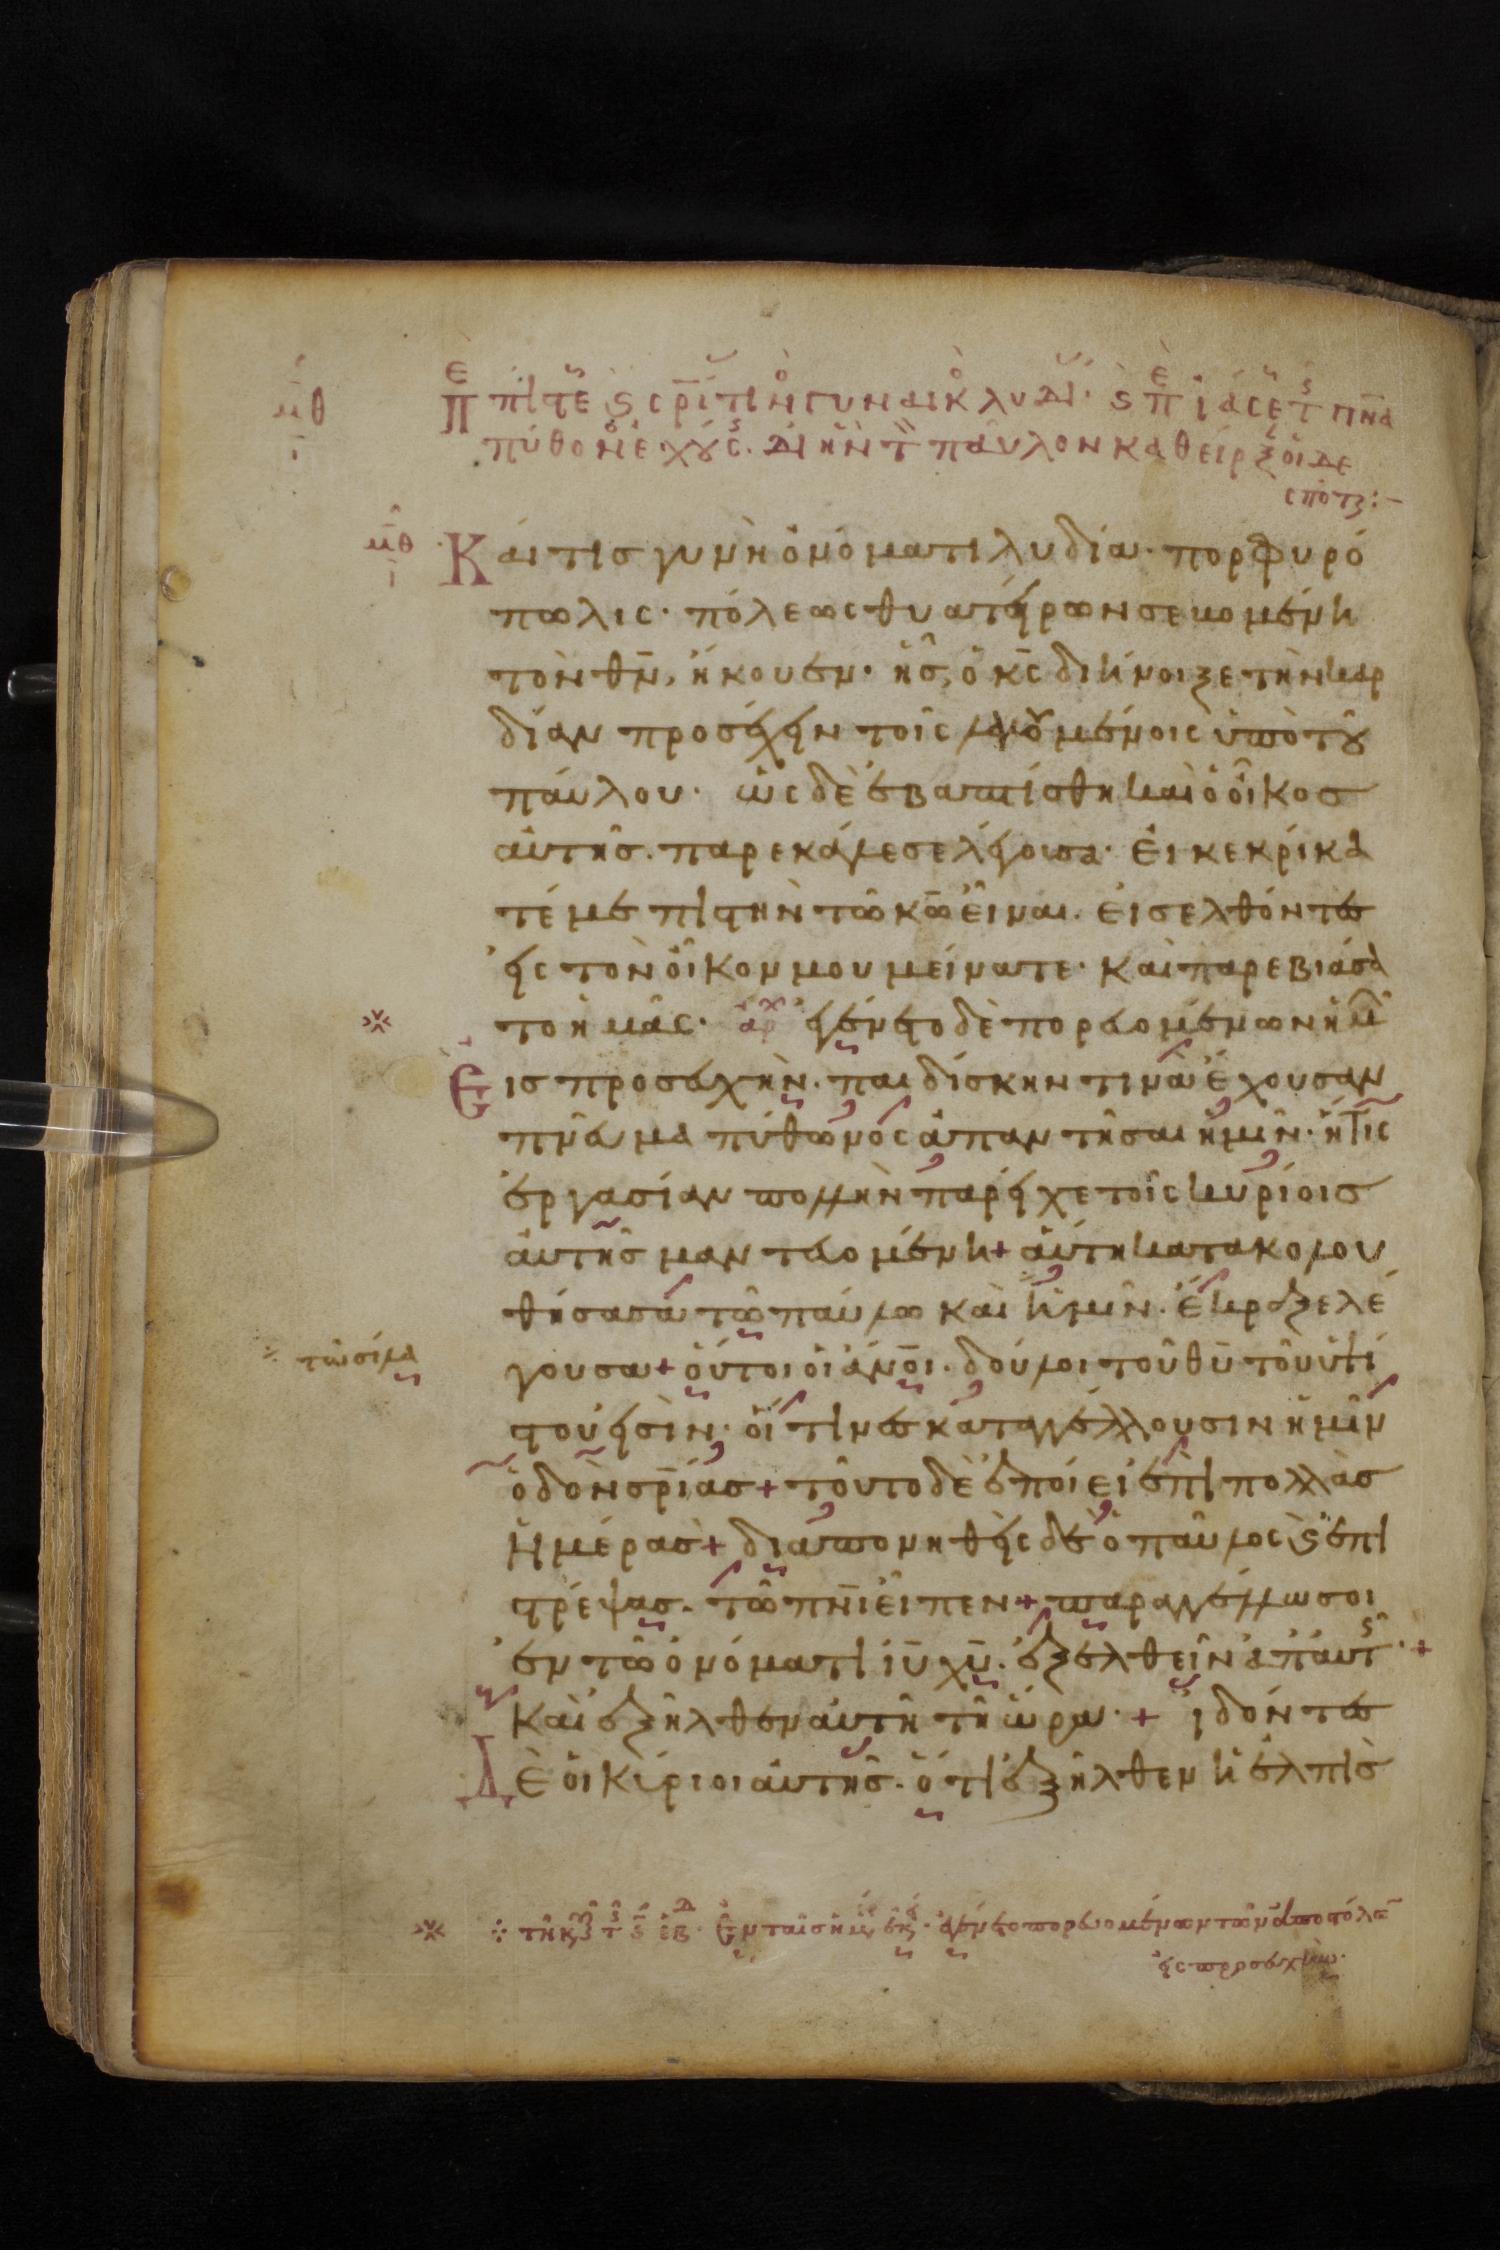 μθ
Καί τις γυνὴ ὀνόματι λυδία· πορφυρό
πωλις· πόλεως θυατείρων σεβομένη
τὸν θν̄, ἤκουεν· ἧς, ὁ κς̄ διήνοιξε τὴν καρ
δίαν προσέχειν τοῖς λαλουμένοις ὑπὸ τοῦ
παύλου· ὡς δὲ ἐβαπτίσθη καὶ ὁ οἶκος
αὐτῆς. παρεκάλεσε λέγουσα· εἰ κεκρίκα
τέ με πιστὴν τῶ κω̄ εἶναι. εἰσελθόντες
εἰς τὸν οἶκον μου μείνατε· καὶ παρεβιάσα
το ἡμᾶς· ἀρχ ἐγένετο δὲ πορευομένων ἡμ
Εἰς προσευχὴν· παιδίσκην τινὰ ἔχουσαν
πνεῦμα πύθωνος ἀπαντῆσαι ἡμῖν· ἥτις
ἐργασίαν πολλὴν παρεῖχε τοῖς κυρίοις
αὐτῆς μαντευομένη + αὕτη κατακολου
θήσασα τῶ παύλω καὶ ἡμῖν· ἔκραζε λέ
τῶ σίλα
γουσα + οὗτοι οἱ ἄνοι. δοῦλοι τοῦ θῡ τοῦ ὑψί
στου εἰσὶν· οἵτινες καταγγέλλουσιν ἡμῖν
ὁδὸν σρ̄ίας + τοῦτο δὲ ἐποίει ἐπὶ πολλὰς
ἡμέρας + διαπονηθεὶς δὲ ὁ παῦλος καὶ ἐπι
στρέψας. τῶ πνῑ εἶπεν + παραγγέλλω σοι
ἐν τῶ ὀνόματι ῑῡ χῡ. ἐξελθεῖν ἀπ' αυτ· +
καὶ ἐξῆλθεν αὐτῆ τῆ ὥρα· + ἰδόντες
Δὲ οἱ κύριοι αὐτῆς. ὅτι ἐξῆλθεν ἡ ἐλπὶς
ἐγένετο πορευομένων τῶν ἀποστόλω
εἰς προσευχὴν·